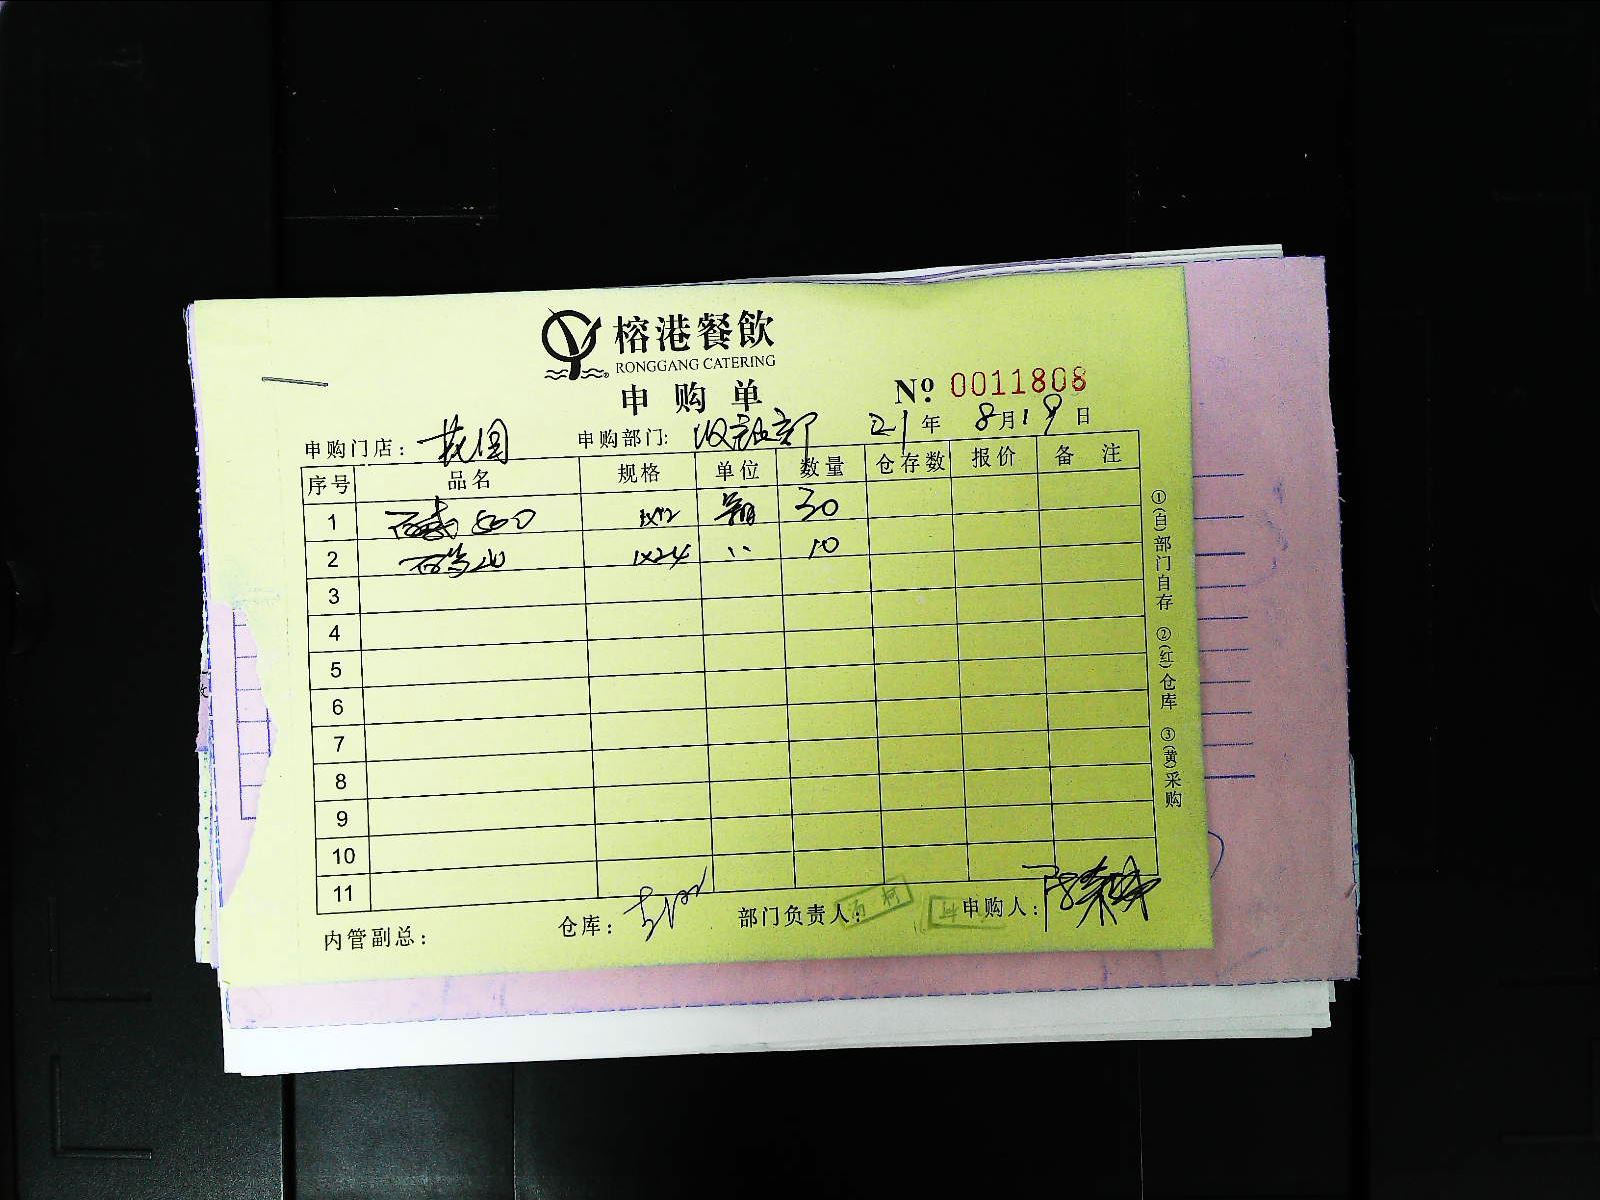 榕港餐飲
RONGGANG CATERING
申购单
№ 0011808
申购门店: 花园 申购部门: 21年 8月19日
序号 品名 规格 单位 数量 仓存数 报价 备注
1 500 1X12 箱 30
2 1X24 〃 10
3
4
5
6
7
8
9
10
11
内管副总: 仓库: 部门负责人: 申购人:
①(白)部门自存 ②(红)仓库 ③(黄)采购